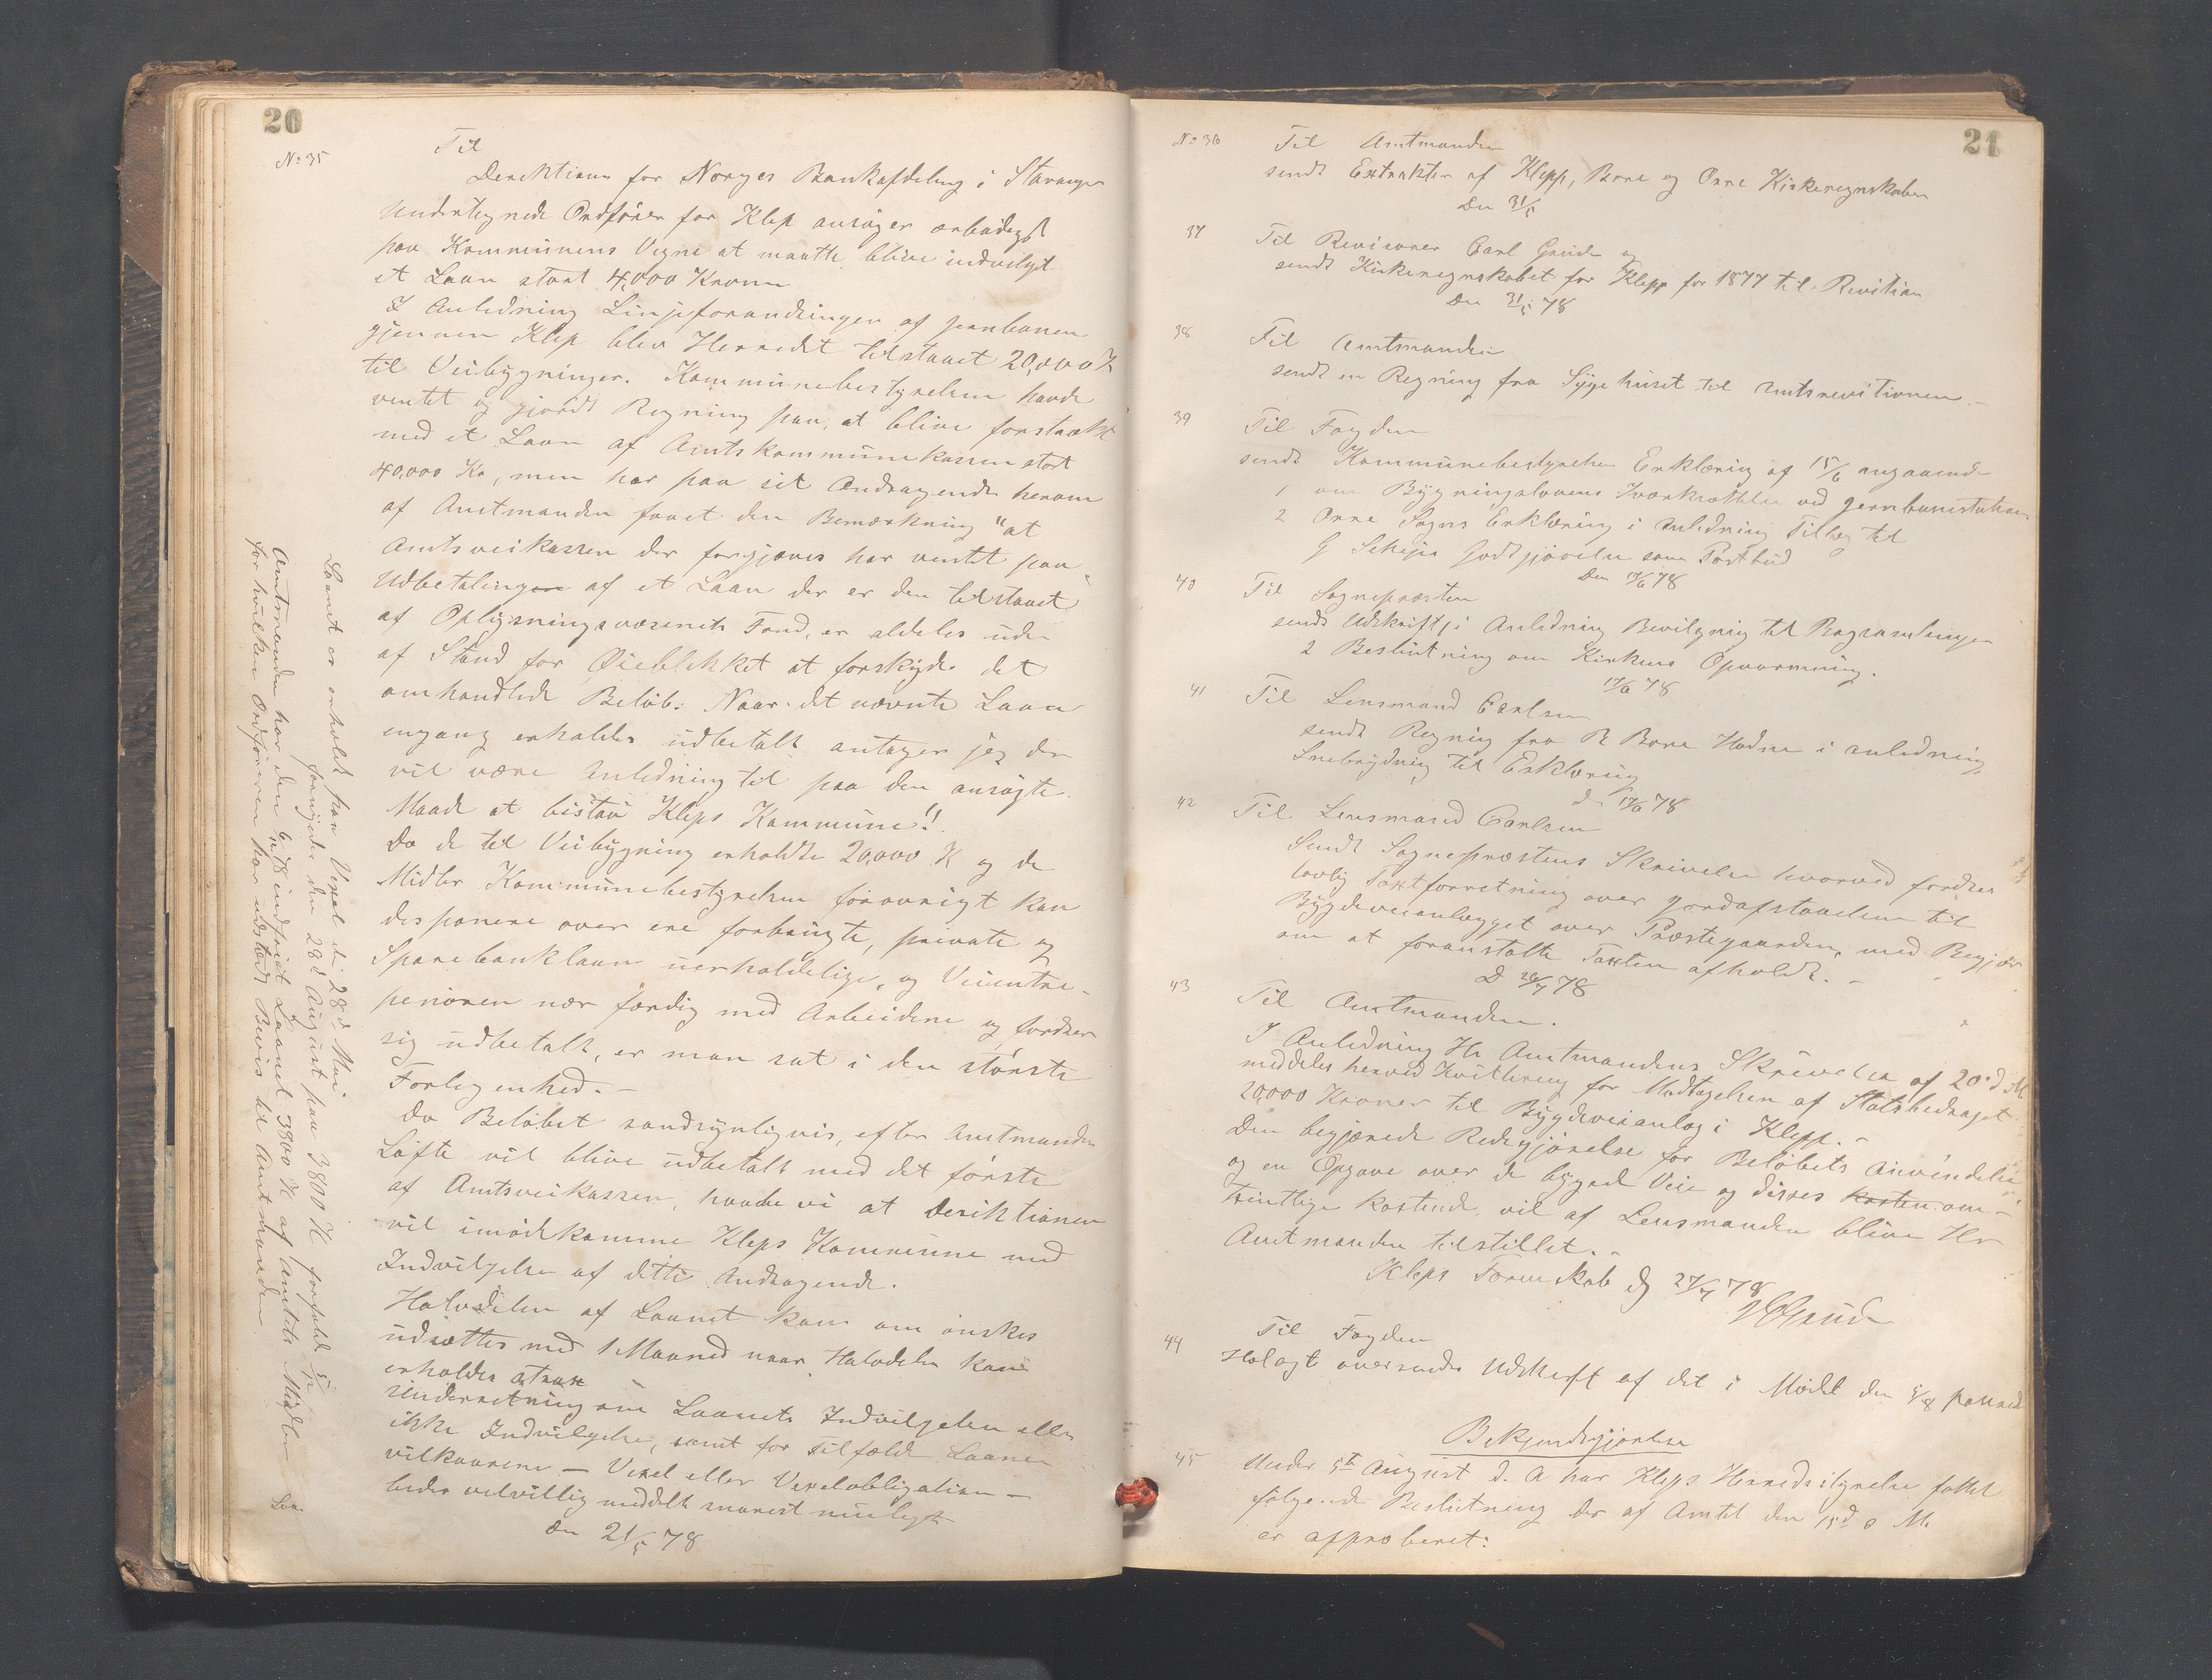 20
No 35
Til
Direktionen for Norges Bankafdeling i Stavanger
Undertegnede Ordfører for Klep ansøger ærbødigst
paa Kommunens Vegne at maatte blive indvilget
et Laan stort 4,000 Kroner
I Anledning Linjeforandringen af jernbanen
gjennem Klep blev Herredet tilstaaet 20,000 K
til Veibygninger. Kommunebestyrelsen havde
ventet og gjordt Regning paa, at blive forstrækt
med et Laan af Amtskommunekassen stort
40,000 Kr, men har paa sit Andragende herom
af Amtmanden faaet den Bemærkning "at
Amtsveikassen der forgjæves har ventet paa
Udbetalingen af et Laan der er den tilstaaet
af Oplysningsvæsenets Fond, er aldeles ude
af Stand for Øieblikket at forskyde det
omhandlede Beløb. Naar det nævnte Laan
engang erholdes udbetalt antager jeg der
vil være Anledning til paa den ansøgte
Maade at bistaa Kleps Kommune"!
Da de til Veibygning erholdte 20,000 K og de
Midler Kommunebestyrelsen forøvrigt kan
desponere over ere forbrugte, private og
Sparebanklaan uerholdelige, og Veientre-
penøren nær færdig med Arbeidene og fordrer
sig udbetalt, er man sat i den største
Forlegenhed.-
Da Beløbet sandsynligvis, efter Amtmandens
Løfte vil blive udbetalt med det første
af Amtsveikassen, haabe vi at Direktionen
vil imødekomme Kleps Kommune med
Indvilgelse af dette Andragende.
Halvdelen af Laanet kan om ønskes
udsættes med 1 Maaned naar Halvdelen kan
erholdes strax
Underretning om Laanets Indvilgelse eller
ikke Indvilgelse, samt for Tilfælde Laane-
vilkaarene - Vexel eller Vexelobligation -
bedes velvillig meddelt snarest muligt
Den 21/5 78
Laanet er erholdt paa Vexel de 28d Mai
fornyedes den 28d August paa 3800 K forfalden
Amtmanden har den indfriet Laanet 3800 K af Amtets Midler
for hvilken Ordføreren har udstedt Bevis til Amtmanden.
21
No 36
Til Amtmanden
sendt Extrakter af Klepp, Bore og Orre Kirkeregnskaber
Den 31/5
37
Til Revisorer Carl Grude og
sendt Kirkeregnskabet for Klepp for 1877 til Revition
Den 31/5 78
38
Til Amtmanden
sendt en Regning fra Sygehuset til Amtsrevitionen.-
39
Til Fogden
sendt Kommunebestyrelsen Erklæring af 15/6 angaaende
1 om Bygningslovens Iværksættelse ved Jernbanestation
2 Orre Sogns Erklæring i Anledning Tillæg til
G Godtgjørelse som Postbud
Den 17/6 78
40
Til Sognepræsten
sendt Udskrift, i Anledning Bevilgning til Bogsamlingen
2 Beslutning om Kirkens Opvarmning.
17/6 78
41
Til Lensmand Carlsen
sendt Regning fra R Bore Hodne i anledning
Snebrydning til Erklæring
d. 17/6 78
42
Til Lensmand Carlsen
Sendt Sognepræstens Skrivelse hvorved fordres
lovlig Taxtforretning over jordafstaaelsen til
Bygdeveianlægget over Præstegaarden, med Begjær
om at foranstalte Taxten afholdt.-
D 26/7 78
43
Til Amtmanden.
I Anledning Hr Amtmandens Skrivelse af 20.d M
meddeles herved Kvittering for Modtagelsen af Statsbidraget
20,000 Kroner til Bygdeveianlæg i Klepp.-
Den begjærede Redegjørelse for Beløbets Anvendelse
og en Opgave over de bygged Veie og disses kosten om-
trentlige Kostende vil af Lensmanden blive Hr
Amtmanden tilstillet.-
Kleps Formskab d 27/7 78
Grude
44
Til Fogden
Holagt oversendes Udskrift af det i Mødet den 5/8 passerede
Bekjendtgjørelse
45
Under 5te August d. A har Kleps Herredsstyrelse fattet
følgende Beslutning der af Amtet den 15d s M.
er approberet: